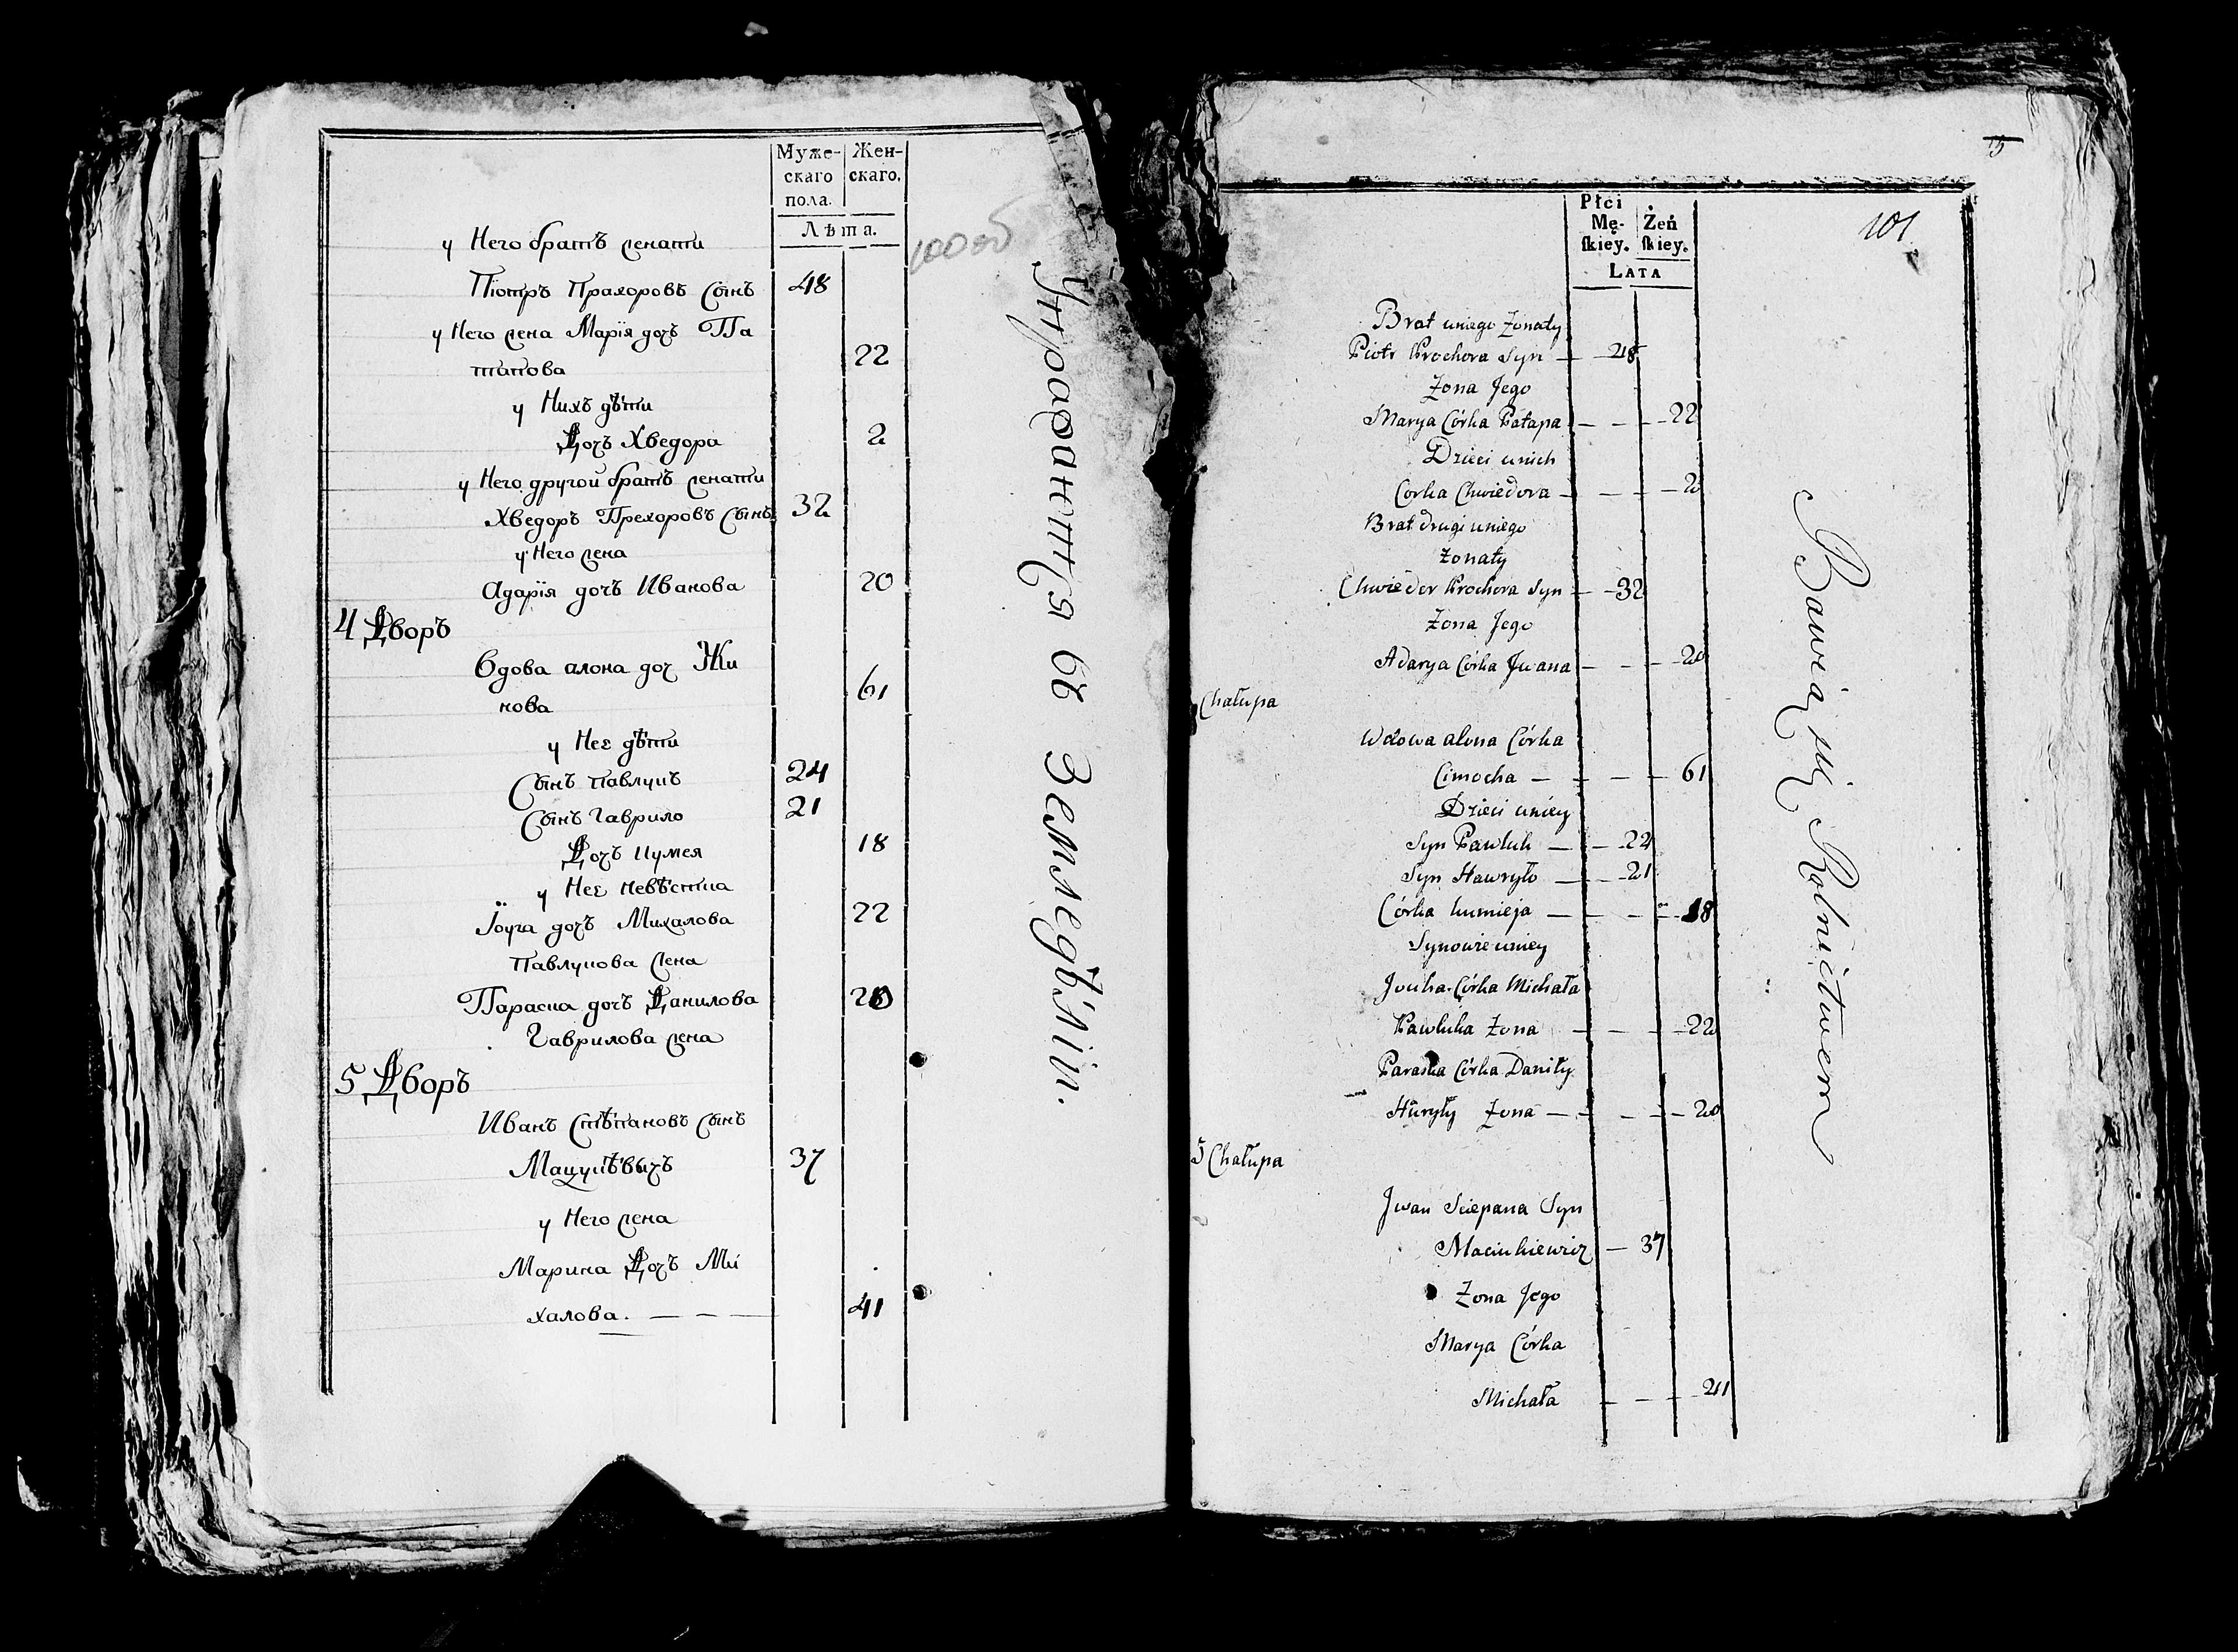 Муже-
скаго
пола.
Жен-
скаго.
Лѣта.
100об
у Него братъ женати
Піотръ Прахоровъ Сынъ 48
у Него жена Марія дочъ Па
тапова 22
у Нихъ дѣти
Дочъ Хведора 2
у Него другой братъ женати
Хведоръ Прехоровъ Сынъ 32
у Него жена
Адарія дочъ Иванова 20
4 Дворъ
Вдова алона доч
нова 61
у Неε дѣти
Сынъ Павлукъ 24
Сынъ Гаврило 21
Дочъ Кумея 18
у Неε невѣстка
Іоуга дочъ Михалова 22
Павлукова жена
Параска дочъ Данилова 20
Гаврилова жена
5 Дворъ
Иванъ Стѣпановъ Сынъ
Мацукѣвичъ 37
у Него жена
Марина Дочъ Ми
халова. 41
въ Земледѣліи.
5
101
Płci
Mę-
skiey.
Żeń
skiey.
LATA
Brat uniego Żonaty
Piotr Prochora Syn — 48
Żona Jego
Marya Córka Patapa — 22
Dzieci unich
Corka Chwiedora — 2
Brat drugi uniego
żonaty
Chwiedor Prochora Syn — 32
Żona Jego
Adarya Córka Jwana — 20
Chałupa
Wdowa alona Córka
Cimocha — 61
Dzieci uniey
Syn Pawluk — 24
Syn Hawryło — 21
Córka kumieja — 18
Synowie uniey
Jouha Córka Michała
Pawluka Żona — 22
Paraska Córka Daniły
Huryły Żona — 20
5 Chałupa
Jwan Sciepana Syn
Maciukiewicz — 37
Żona Jego
Marya Córka
Michała — 41
Bawią się Rolnictwem